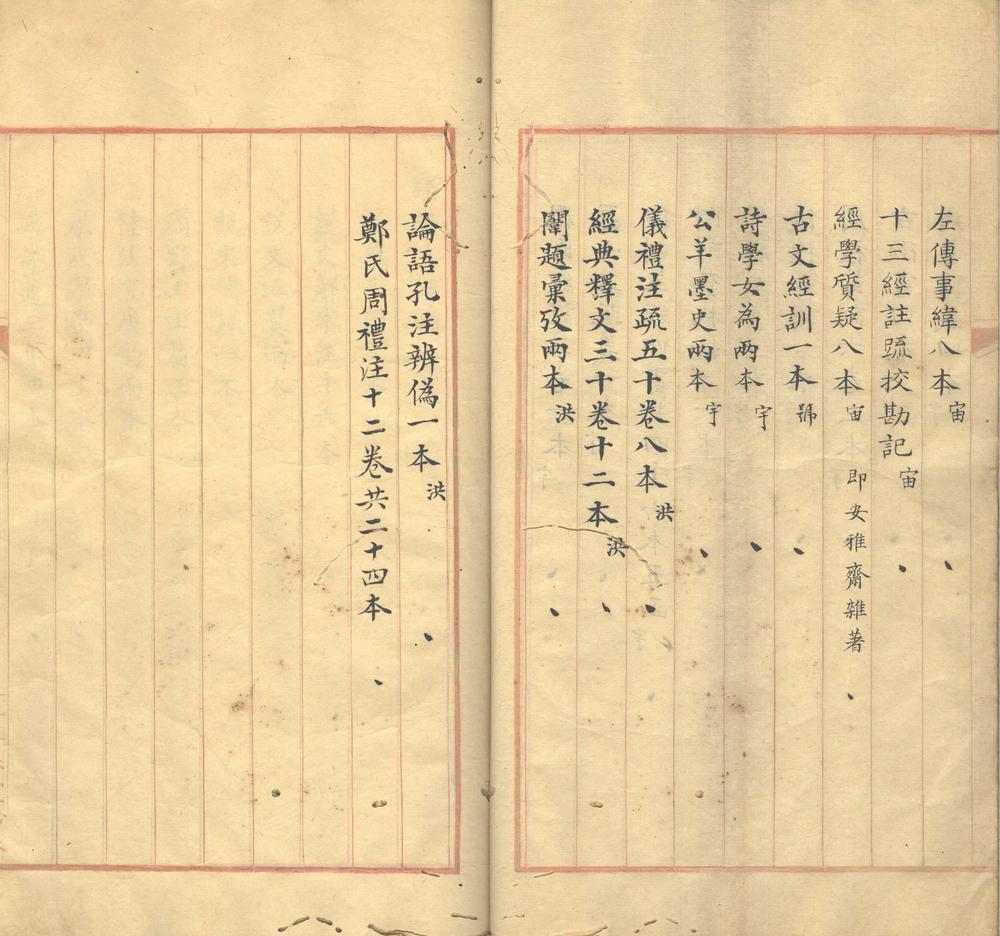 左傳事緯八本 宙
十三經註疏挍勘記 宙
經學質疑八本 宙 即安雅齋雜著
古文經訓一本 號
詩學女為兩本 宇
公羊墨史兩本 宇
儀禮注疏五十卷八本 洪
經典釋文三十卷十二本 洪
闈題彙攷兩本 洪
論語孔注辨偽一本 洪
鄭氏周禮注十二卷共二十四本